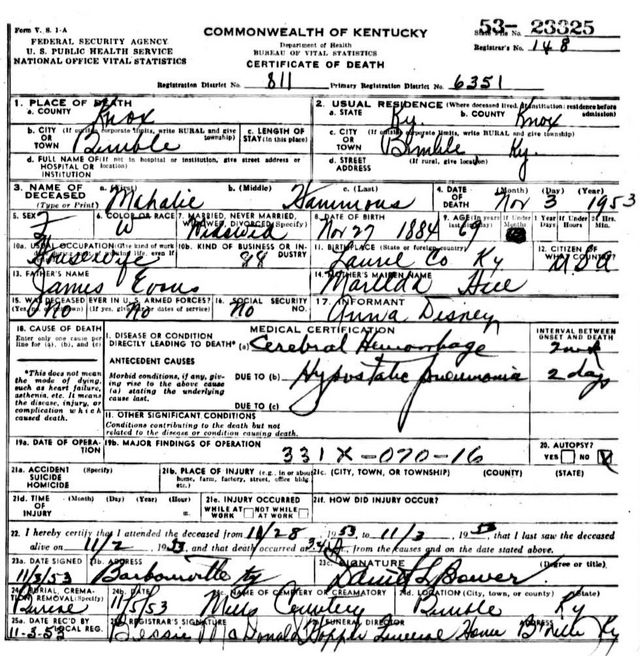 Form V. S. 1-A
FEDERAL SECURITY AGENCY
U. S. PUBLIC HEALTH SERVICE
NATIONAL OFFICE VITAL STATISTICS
COMMONWEALTH OF KENTUCKY
Department of Health
BUREAU OF VITAL STATISTICS
CERTIFICATE OF DEATH
53- 23325
State File No.
Registrar's No. 148
Registration District No. 811 Primary Registration District No. 6351
1. PLACE OF DEATH
a. COUNTY Knox
2. USUAL RESIDENCE (Where deceased lived. If institution: residence before admission)
a. STATE Ky. b. COUNTY Knox
b. CITY (If outside corporate limits, write RURAL and give township) OR TOWN Bimble
c. LENGTH OF STAY (in this place)
c. CITY (If outside corporate limits, write RURAL and give township) OR TOWN Bimble Ky.
d. FULL NAME OF (If not in hospital or institution, give street address or location) HOSPITAL OR INSTITUTION
d. STREET ADDRESS (If rural, give location)
3. NAME OF DECEASED (Type or Print) a. (First) Mahalie b. (Middle) c. (Last) Hammons
4. DATE OF DEATH (Month) (Day) (Year) Nov 3 1953
5. SEX F
6. COLOR OR RACE W
7. MARRIED, NEVER MARRIED, WIDOWED, DIVORCED (Specify) Widowed
8. DATE OF BIRTH Nov 27 1884
9. AGE
10a. USUAL OCCUPATION (Give kind of work Housewife
10b. KIND OF BUSINESS OR INDUSTRY 88
11. BIRTHPLACE (State or foreign country) Laurel Co Ky
12. CITIZEN OF WHAT COUNTRY? USA
13. FATHER'S NAME James Evans
14. MOTHER'S MAIDEN NAME Matilda
15. WAS DECEASED EVER IN U. S. ARMED FORCES? No
16. SOCIAL SECURITY NO. No
17. INFORMANT Anna Disney
18. CAUSE OF DEATH
Enter only one cause per line for (a), (b), and (c)
MEDICAL CERTIFICATION
INTERVAL BETWEEN ONSET AND DEATH
I. DISEASE OR CONDITION DIRECTLY LEADING TO DEATH* (a) Cerebral Hemorrhage
*This does not mean the mode of dying, such as heart failure, asthenia, etc. It means the disease, injury, or complication which caused death.
ANTECEDENT CAUSES
Morbid conditions, if any, giving rise to the above cause (a) stating the underlying cause last.
DUE TO (b) Hypostatic pneumonia 2 days
DUE TO (c)
II. OTHER SIGNIFICANT CONDITIONS
Conditions contributing to the death but not related to the disease or condition causing death.
19a. DATE OF OPERATION
19b. MAJOR FINDINGS OF OPERATION
331X-070-16
20. AUTOPSY? YES NO X
21a. ACCIDENT SUICIDE HOMICIDE (Specify)
21b. PLACE OF INJURY (e.g., in or about home, farm, factory, street, office bldg., etc.)
21c. (CITY, TOWN, OR TOWNSHIP) (COUNTY) (STATE)
21d. TIME OF INJURY (Month) (Day) (Year) (Hour)
21e. INJURY OCCURRED WHILE AT WORK NOT WHILE AT WORK
21f. HOW DID INJURY OCCUR?
22. I hereby certify that I attended the deceased from 10/28, 1953, to 11/3, 1953, that I last saw the deceased
alive on 11/2, 1953, and that death occurred at , from the causes and on the date stated above.
23a. DATE SIGNED 11/3/53
23b. ADDRESS Barbourville Ky
23c. SIGNATURE (Degree or title) David L Bower
24a. BURIAL, CREMATION, REMOVAL (Specify) Burial
24b. DATE 11/5/53
24c. NAME OF CEMETERY OR CREMATORY Mills Cemetery
24d. LOCATION (City, town, or county) (State) Bimble Ky
25a. DATE REC'D BY LOCAL REG. 11-3-53
25b. REGISTRAR'S SIGNATURE Bessie McDonald
FUNERAL DIRECTOR Hopper Funeral Home
ADDRESS B'ville Ky